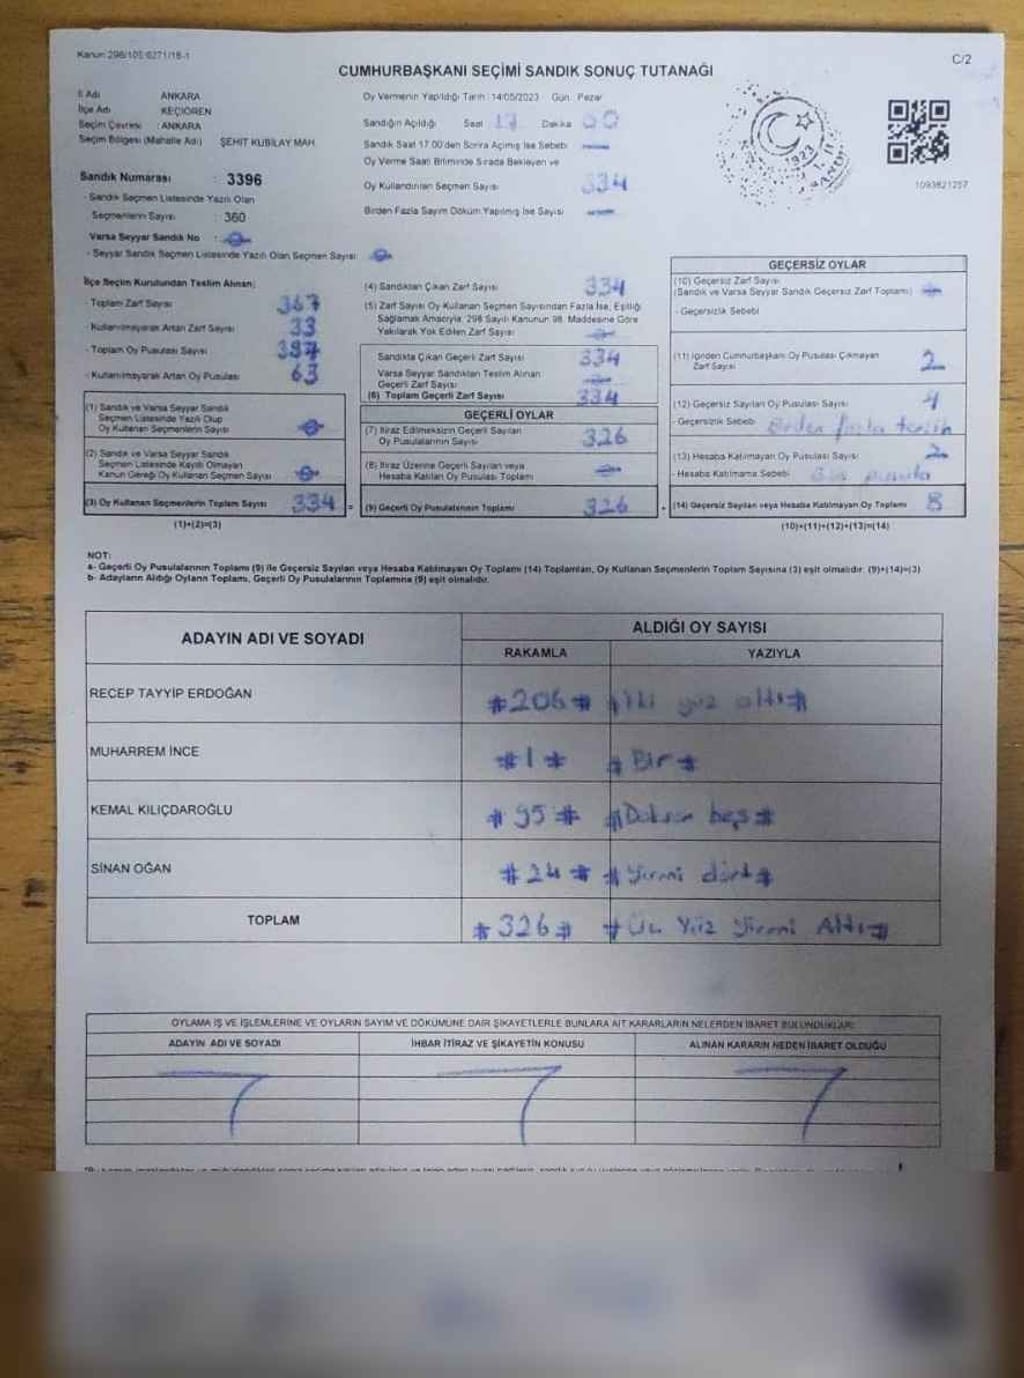 Kanun: 298/105 6271/18-1
C/2
CUMHURBAŞKANI SEÇİMİ SANDIK SONUÇ TUTANAĞI
İl Adı ANKARA
İlçe Adı KEÇİÖREN
Seçim Çevresi : ANKARA
Seçim Bölgesi (Mahalle Adı) ŞEHİT KUBİLAY MAH.
Sandık Numarası : 3396
- Sandık Seçmen Listesinde Yazılı Olan
Seçmenlerin Sayısı : 360
Varsa Seyyar Sandık No :
- Seyyar Sandık Seçmen Listesinde Yazılı Olan Seçmen Sayısı:
Oy Vermenin Yapıldığı Tarih : 14/05/2023 Gün: Pazar
Sandığın Açıldığı Saat 17 Dakika 00
Sandık Saat 17.00'den Sonra Açılmış İse Sebebi
Oy Verme Saati Bitiminde Sırada Bekleyen ve
Oy Kullandırılan Seçmen Sayısı 334
Birden Fazla Sayım Döküm Yapılmış İse Sayısı
1923
1093821257
İlçe Seçim Kurulundan Teslim Alınan;
- Toplam Zarf Sayısı 367
- Kullanılmayarak Artan Zarf Sayısı 33
- Toplam Oy Pusulası Sayısı 397
- Kullanılmayarak Artan Oy Pusulası 63
(1) Sandık ve Varsa Seyyar Sandık
Seçmen Listesinde Yazılı Olup
Oy Kullanan Seçmenlerin Sayısı
(2) Sandık ve Varsa Seyyar Sandık
Seçmen Listesinde Kayıtlı Olmayan
Kanun Gereği Oy Kullanan Seçmen Sayısı
(3) Oy Kullanan Seçmenlerin Toplam Sayısı 334 =
(1)+(2)=(3)
(4) Sandıktan Çıkan Zarf Sayısı 334
(5) Zarf Sayısı Oy Kullanan Seçmen Sayısından Fazla İse, Eşitliği
Sağlamak Amacıyla, 298 Sayılı Kanunun 98. Maddesine Göre
Yakılarak Yok Edilen Zarf Sayısı
Sandıkta Çıkan Geçerli Zarf Sayısı 334
Varsa Seyyar Sandıktan Teslim Alınan
Geçerli Zarf Sayısı
(6) Toplam Geçerli Zarf Sayısı 334
GEÇERLİ OYLAR
(7) İtiraz Edilmeksizin Geçerli Sayılan
Oy Pusulalarının Sayısı 326
(8) İtiraz Üzerine Geçerli Sayılan veya
Hesaba Katılan Oy Pusulası Toplamı
(9) Geçerli Oy Pusulalarının Toplamı 326 +
GEÇERSİZ OYLAR
(10) Geçersiz Zarf Sayısı
(Sandık ve Varsa Seyyar Sandık Geçersiz Zarf Toplamı)
- Geçersizlik Sebebi
(11) İçinden Cumhurbaşkanı Oy Pusulası Çıkmayan
Zarf Sayısı 2
(12) Geçersiz Sayılan Oy Pusulası Sayısı 4
- Geçersizlik Sebebi Birden fazla tercih
(13) Hesaba Katılmayan Oy Pusulası Sayısı 2
- Hesaba Katılmama Sebebi pusula
(14) Geçersiz Sayılan veya Hesaba Katılmayan Oy Toplamı 8
(10)+(11)+(12)+(13)=(14)
NOT:
a- Geçerli Oy Pusulalarının Toplamı (9) ile Geçersiz Sayılan veya Hesaba Katılmayan Oy Toplamı (14) Toplamları, Oy Kullanan Seçmenlerin Toplam Sayısına (3) eşit olmalıdır. (9)+(14)=(3)
b- Adayların Aldığı Oyların Toplamı, Geçerli Oy Pusulalarının Toplamına (9) eşit olmalıdır.
ADAYIN ADI VE SOYADI
ALDIĞI OY SAYISI
RAKAMLA YAZIYLA
RECEP TAYYİP ERDOĞAN #206# #İki yüz altı#
MUHARREM İNCE #1# #Bir#
KEMAL KILIÇDAROĞLU #95# #Doksan beş#
SİNAN OĞAN #24# #Yirmi dört#
TOPLAM #326# #Üç Yüz Yirmi Altı#
OYLAMA İŞ VE İŞLEMLERİNE VE OYLARIN SAYIM VE DÖKÜMÜNE DAİR ŞİKAYETLERLE BUNLARA AİT KARARLARIN NELERDEN İBARET BULUNDUKLARI
ADAYIN ADI VE SOYADI İHBAR İTİRAZ VE ŞİKAYETİN KONUSU ALINAN KARARIN NEDEN İBARET OLDUĞU